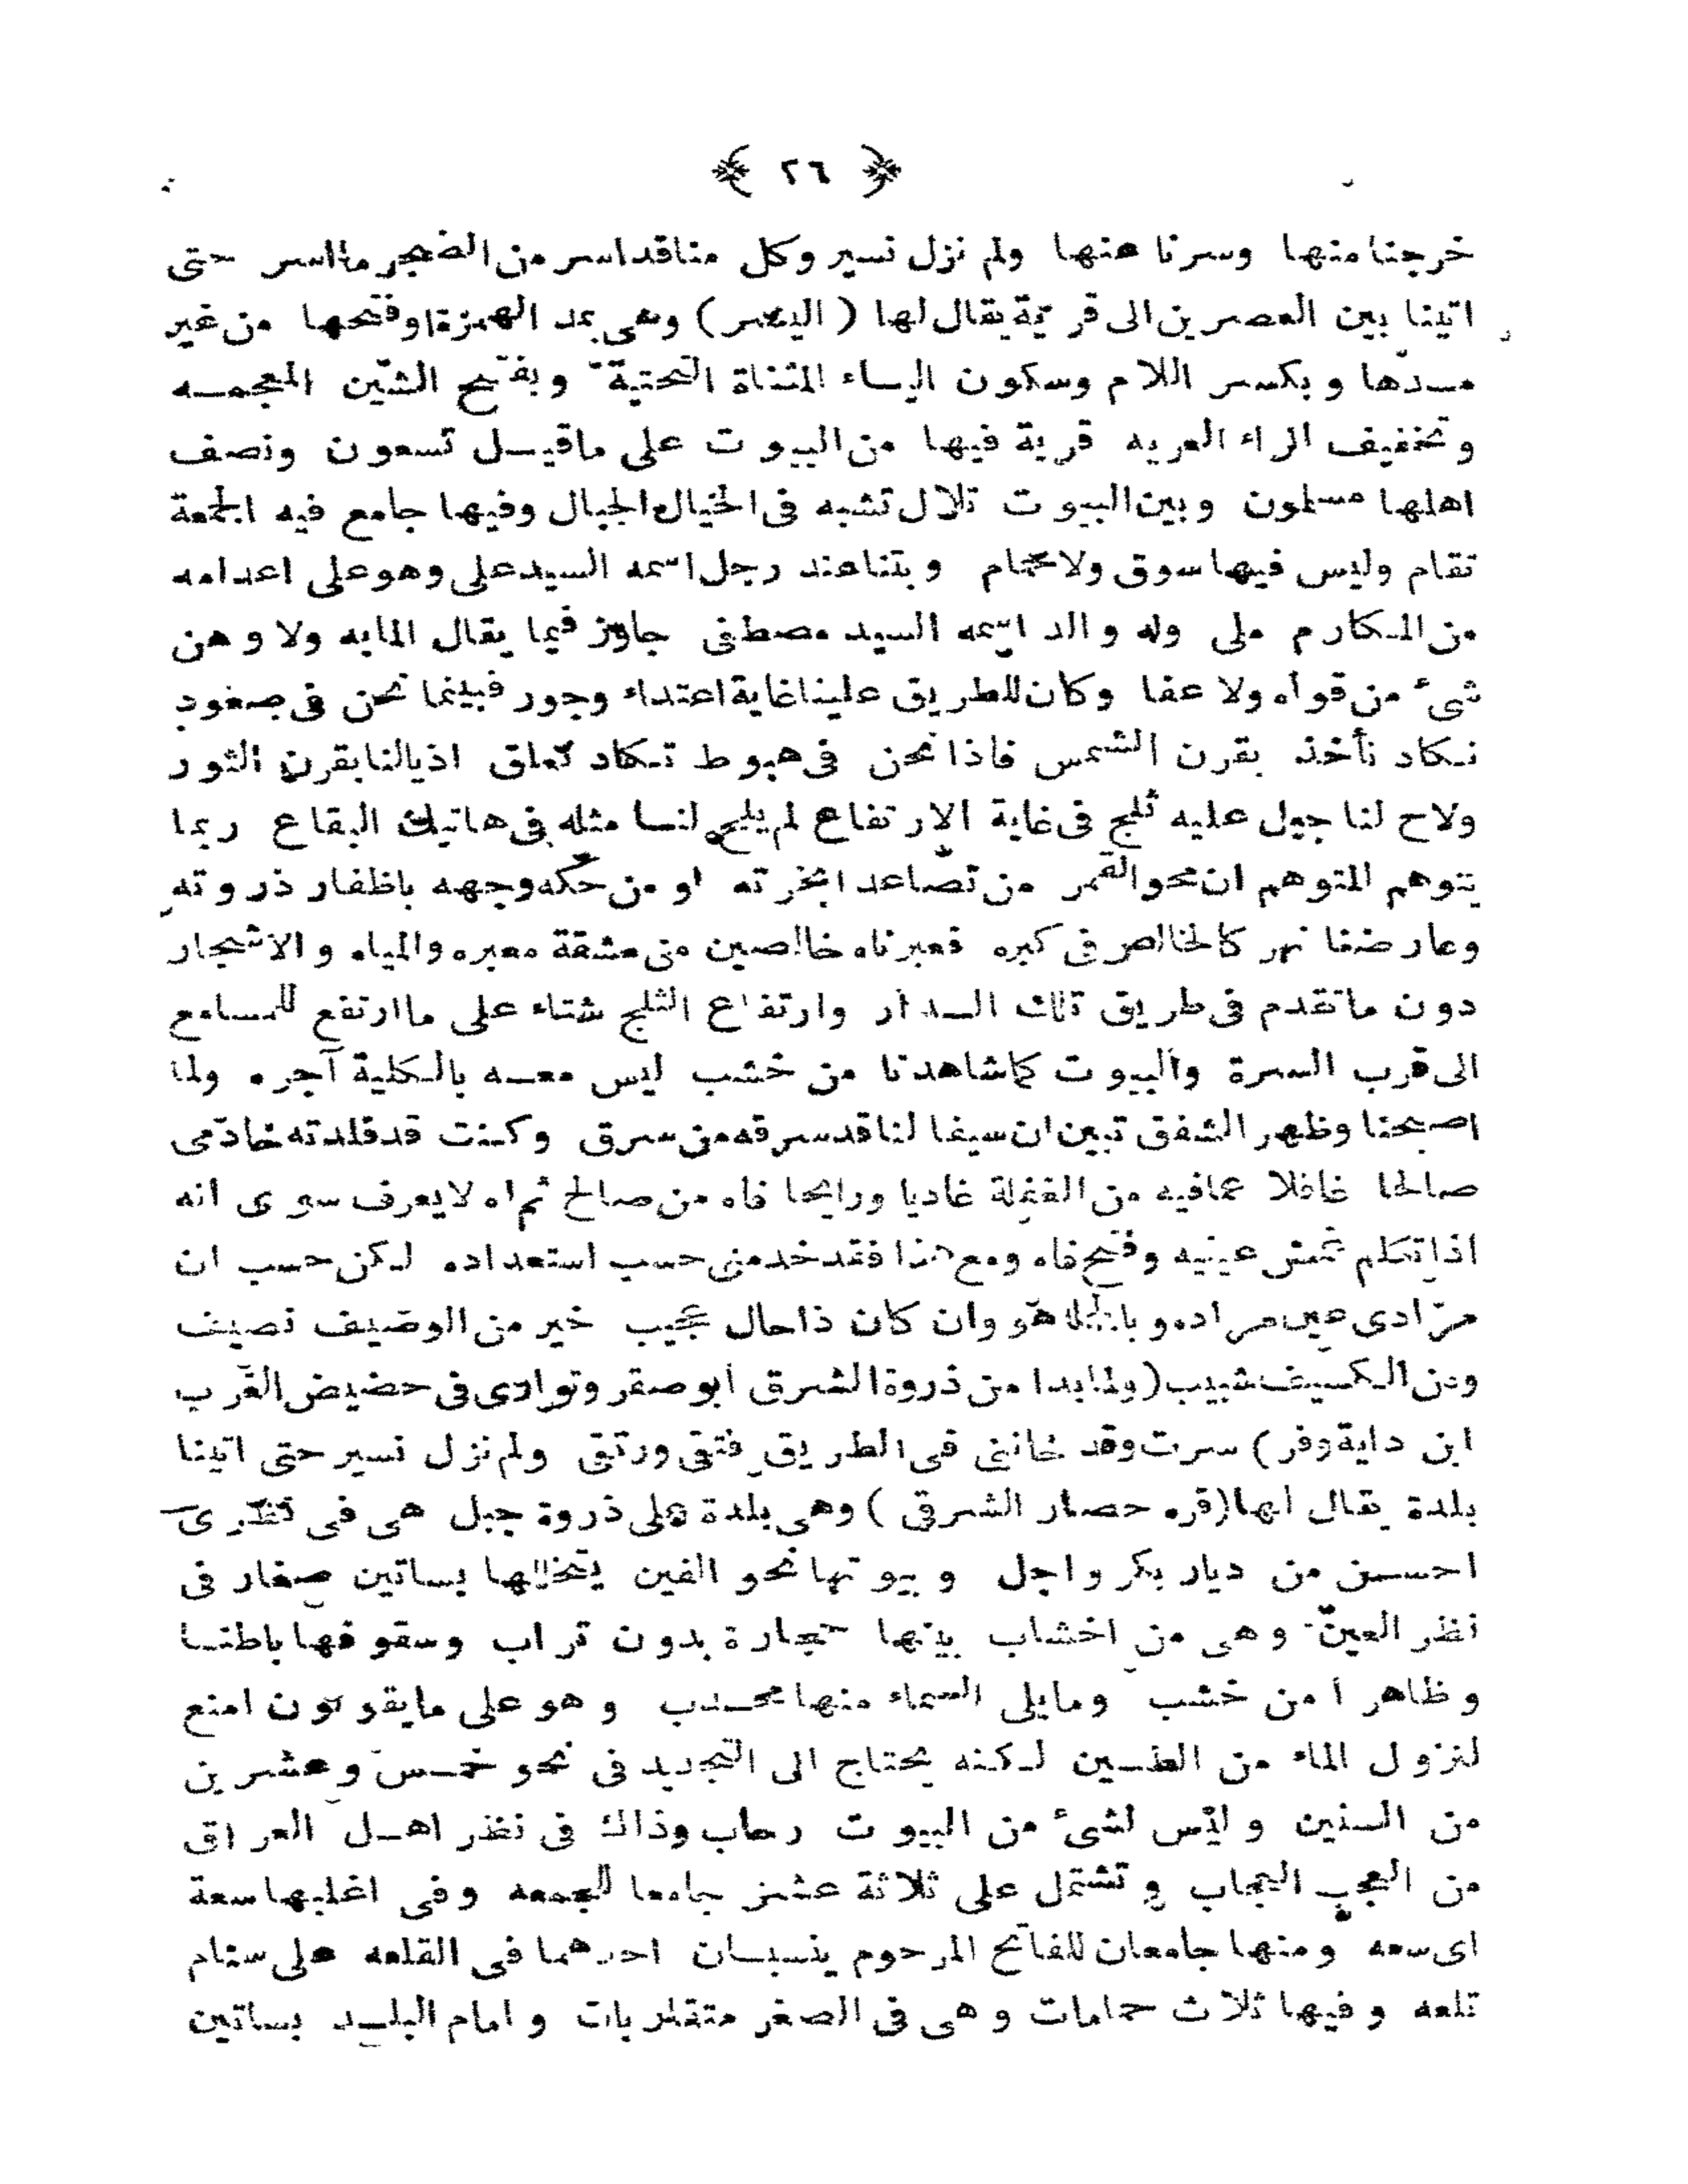 ﴿ ٢٦ ﴾
خرجنا منها وسرنا عنها ولم نزل نسير وكل منا قد اسر من الضجر ما اسر حتى
اتينا بين العصرين الى قرية يقال لها ( اليشر ) وهى بمد الهمزة او فتحها من غير
مدّها وبكسر اللام وسكون الياء المثناة التحتية وبفتح الشين المعجمه
وتخفيف الراء العربيه قرية فيها من البيوت على ما قيل تسعون ونصف
اهلها مسلمون وبين البيوت تلال تشبه فى الخيال الجبال وفيها جامع فيه الجمعة
تقام وليس فيها سوق ولا حمام وبتنا عند رجل اسمه السيد على وهو على اعدامه
من المكارم ملى وله والد اسمه السيد مصطفى جاوز فيما يقال المايه ولا وهن
شئ من قواه ولا عفا وكان للطريق علينا غاية اعتداء وجور فبينما نحن فى صعود
نكاد نأخذ بقرن الشمس فاذا نحن فى هبوط تكاد تعلق اذيالنا بقرن الثور
ولاح لنا جبل عليه ثلج فى غاية الارتفاع لم يلح لنا مثله فى هاتيك البقاع ربما
يتوهم المتوهم ان محو القمر من تصاعد ابخرته او من حكه وجهه باظفار ذروته
وعارضنا نهر كالخالص فى كبره فعبرناه خالصين من مشقة معبره والمياه والاشجار
دون ما تقدم فى طريق تلك الدار وارتفاع الثلج شتاء على ما ارتفع للمسامع
الى قرب السرة والبيوت كما شاهدنا من خشب ليس معه بالكلية آجره ولما
اصبحنا وظهر الشفق تبين ان سيفا لنا قد سرقه من سرق وكنت قد قلدته خادمى
صالحا غافلا عما فيه من الغفلة غاديا ورايحا فاه من صالح ثم اه لا يعرف سوى انه
اذا تكلم غمض عينيه وفتح فاه ومع هذا فقد خدمنى حسب استعداده لكن حسب ان
مرادى عين مراده وبالجملة هو وان كان ذا حال عجيب خير من الوصيف نصيف
ومن الكسيف شبيب ( ولما بدا من ذروة الشرق ابو صقر وتوارى فى حضيض الغرب
ابن داية وفر ) سرت وقد خاننى فى الطريق فتقى ورتقى ولم نزل نسير حتى اتينا
بلدة يقال لها ( قره حصار الشرقى ) وهى بلدة على ذروة جبل هى فى نظرى
احسن من ديار بكر واجل وبيوتها نحو الفين يتخللها بساتين صغار فى
نظر العين وهى من اخشاب بينها حجارة بدون تراب وسقوفها باطنا
وظاهرا من خشب وما يلى السماء منها محدب وهو على ما يقولون امنع
لنزول الماء من الطين لكنه يحتاج الى التجديد فى نحو خمس وعشرين
من السنين وليس لشئ من البيوت رحاب وذاك فى نظر اهل العراق
من العجب العجاب وتشتمل على ثلاثة عشر جامعا للجمعه وفى اغلبها سعة
اى سعه ومنها جامعان للفاتح المرحوم ينسبان احدهما فى القلعه على سنام
تلعه وفيها ثلاث حمامات وهى فى الصغر متقاربات وامام البلد بساتين